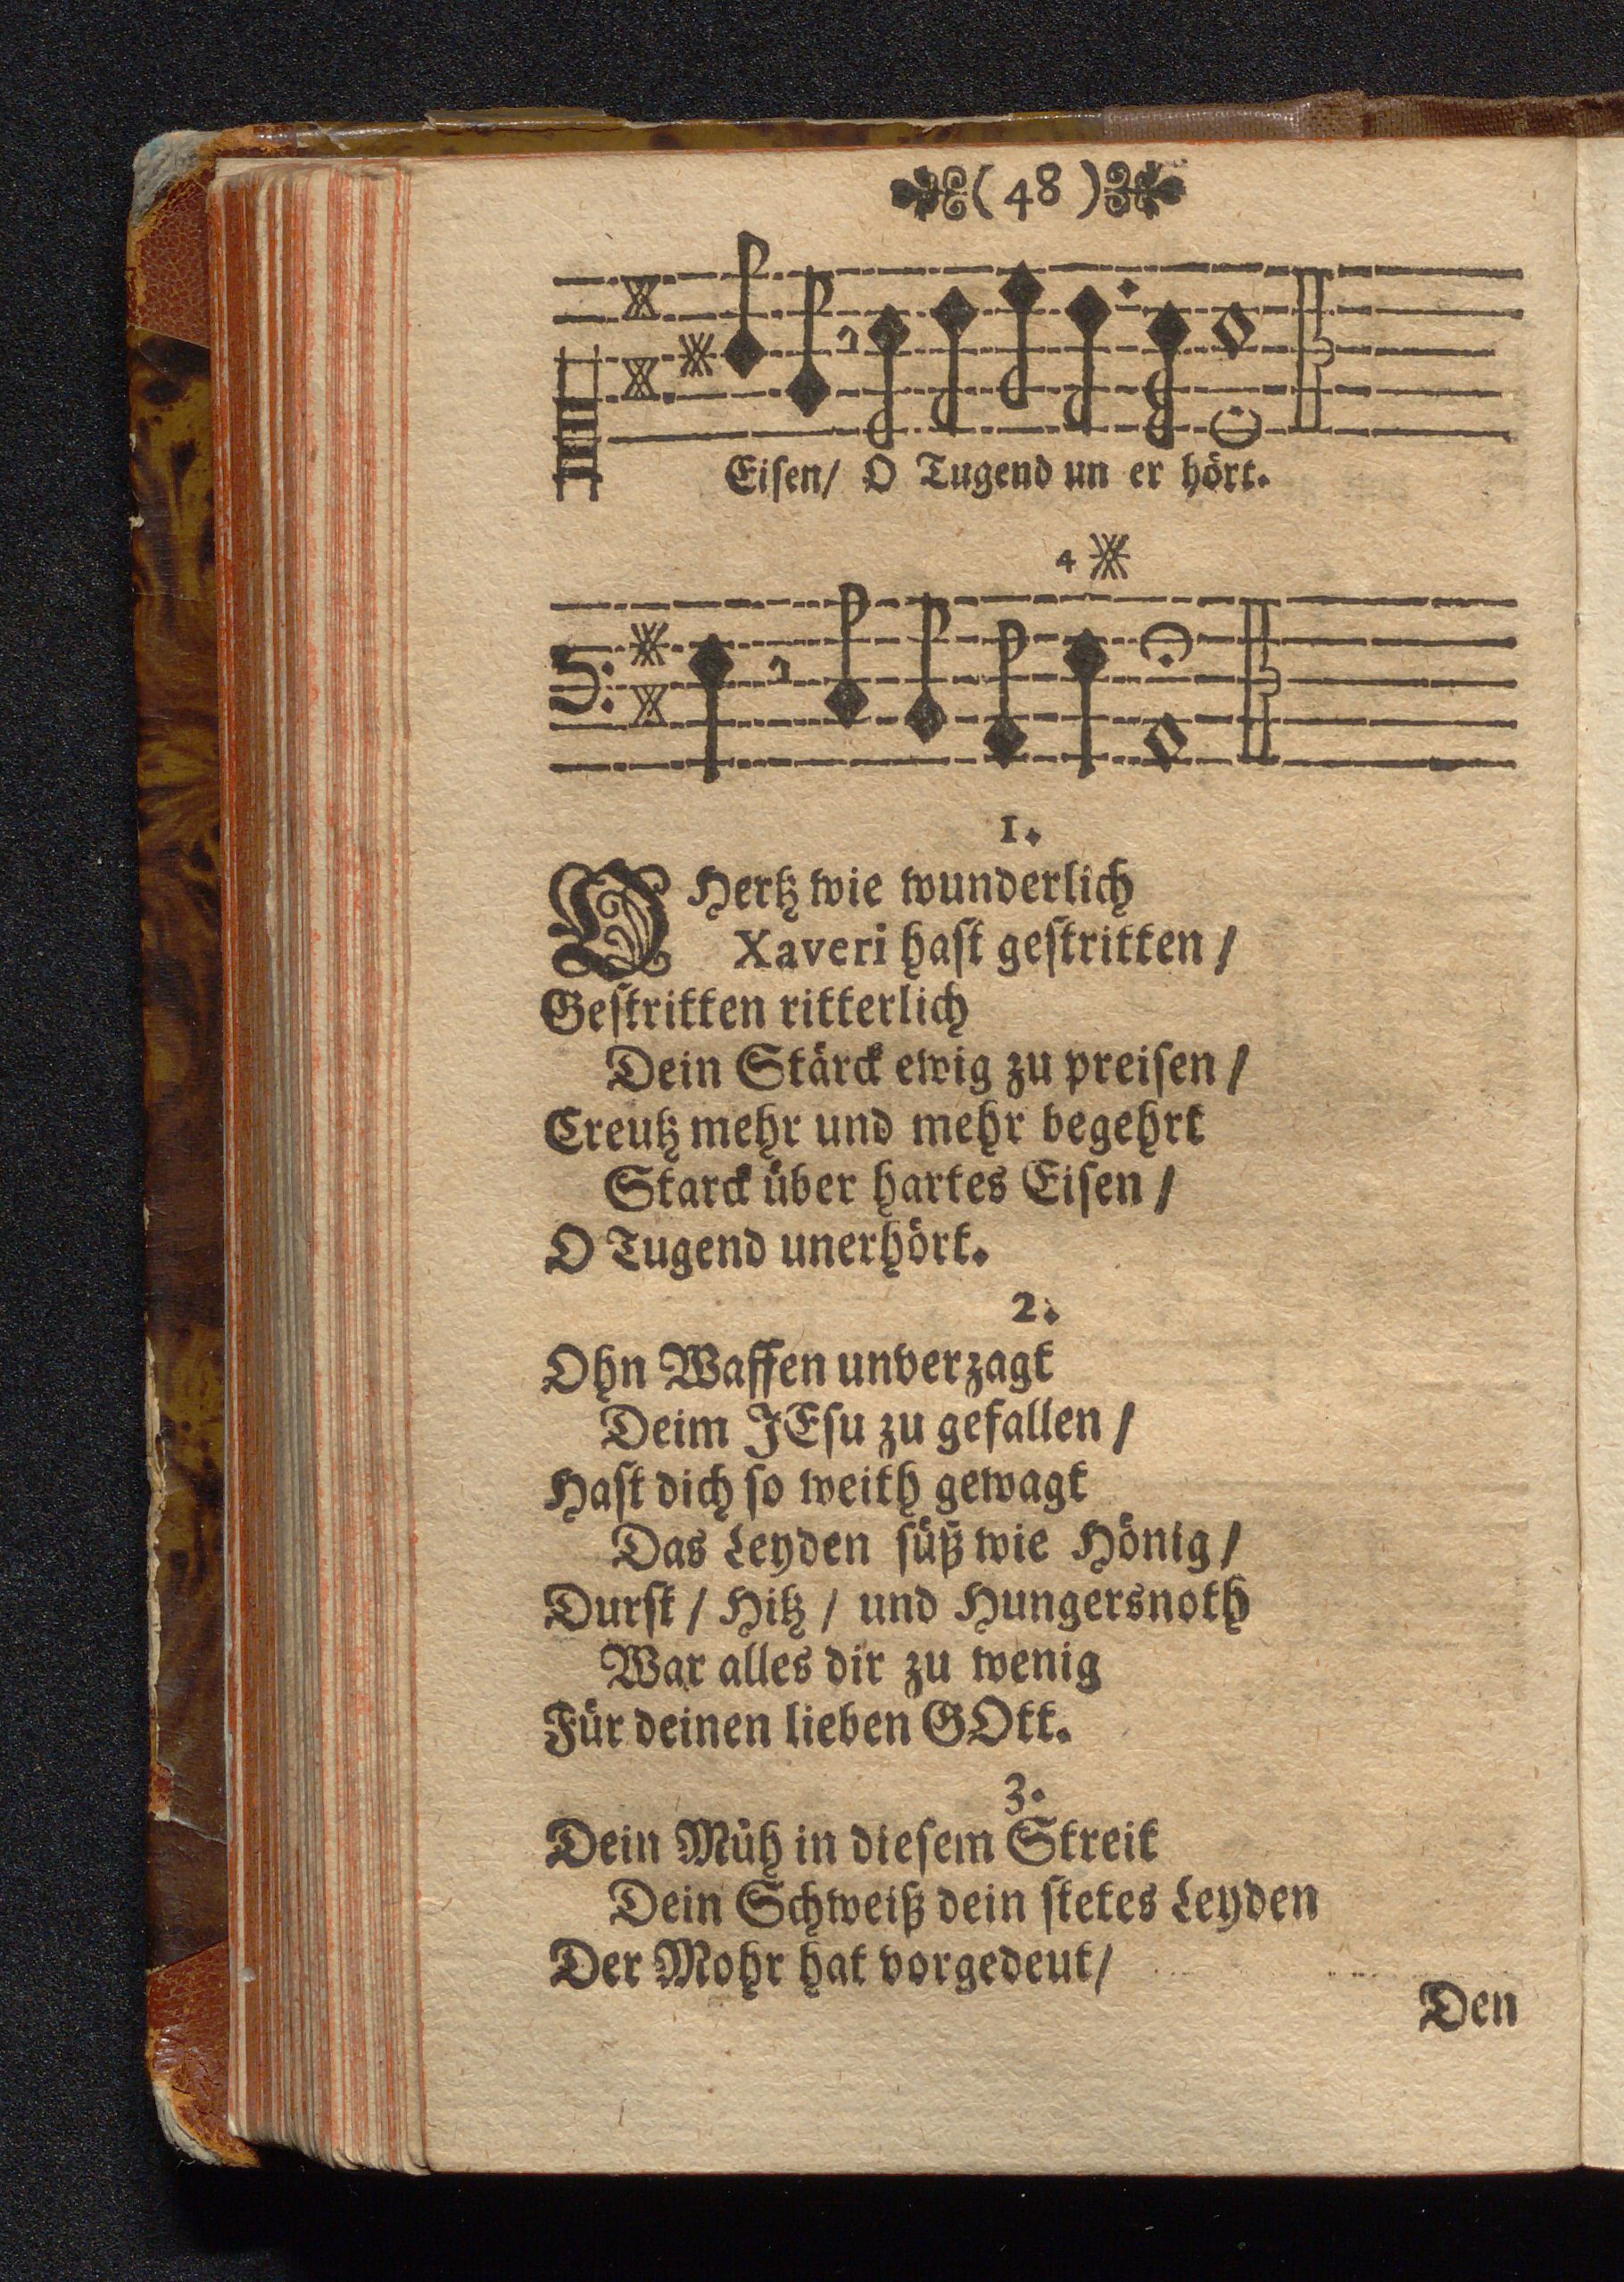 (48)
Eisen/ O Tugend un er hört.
4
1.
O Hertz wie wunderlich
Xaveri hast gestritten /
Gestritten ritterlich
Dein Stärck ewig zu preisen /
Creutz mehr und mehr begehrt
Starck über hartes Eisen /
O Tugend unerhört.
2.
Ohn Waffen unverzagt
Deim JEsu zu gefallen /
Hast dich so weith gewagt
Das Leyden süß wie Hönig /
Durst / Hitz / und Hungersnoth
War alles dir zu wenig
Für deinen lieben GOtt.
3.
Dein Müh in diesem Streit
Dein Schweiß dein stetes Leyden
Der Mohr hat vorgedeut/
Den